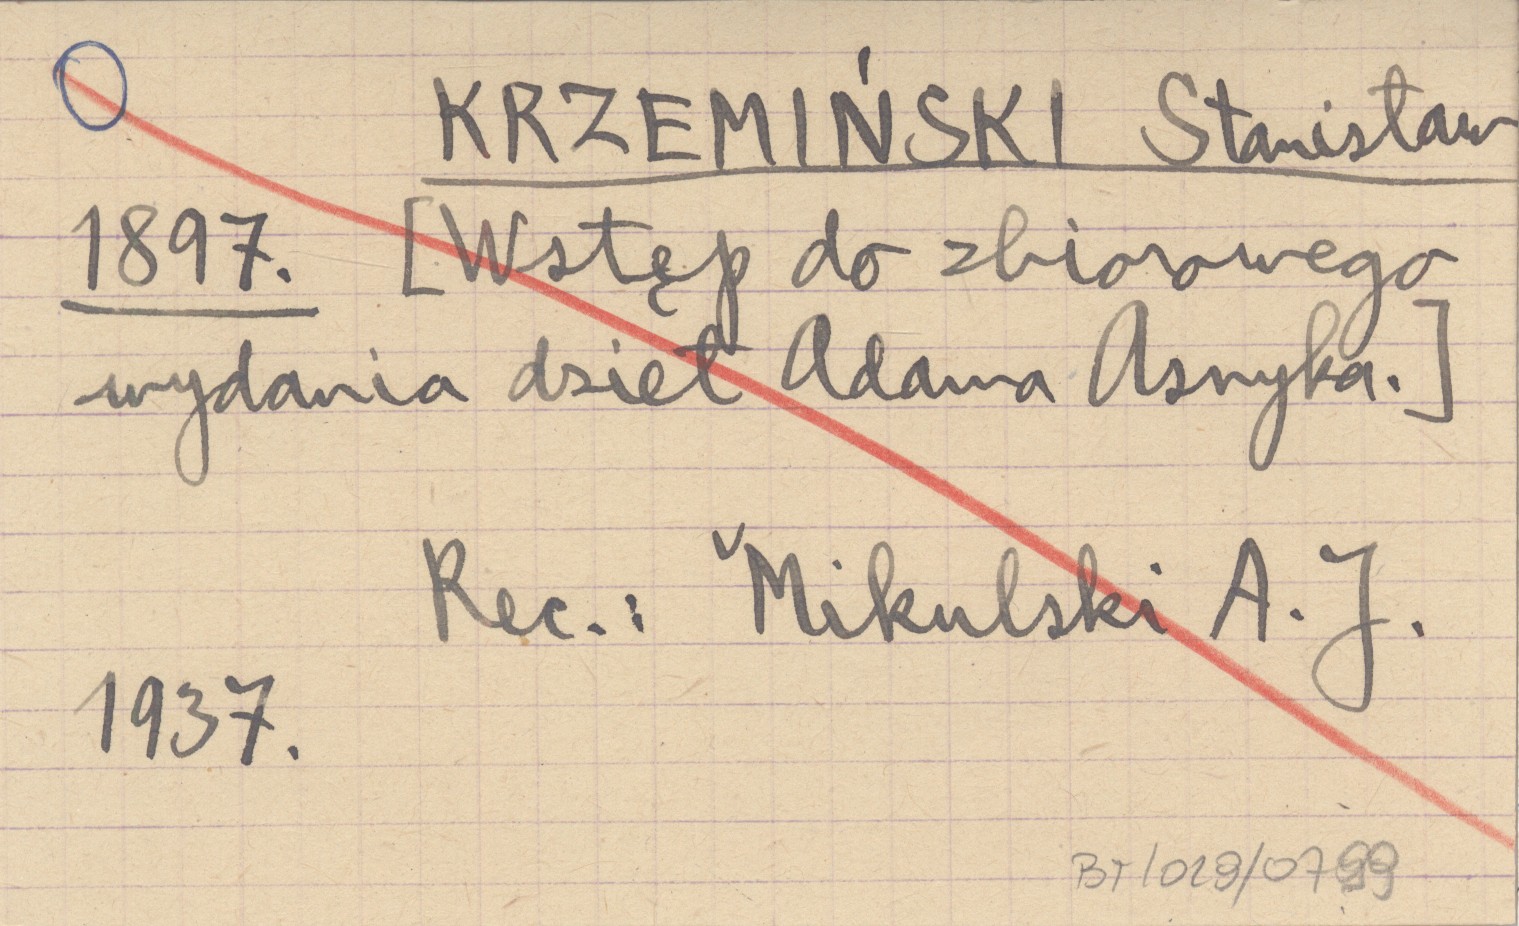 KRZEMIŃSKI Stanisław
1897. [Wstęp do zbiorowego
wydania dzieł Adama Asnyka.]
Rec.: ˇMikulski A. J.
1937.
BT/029/0799